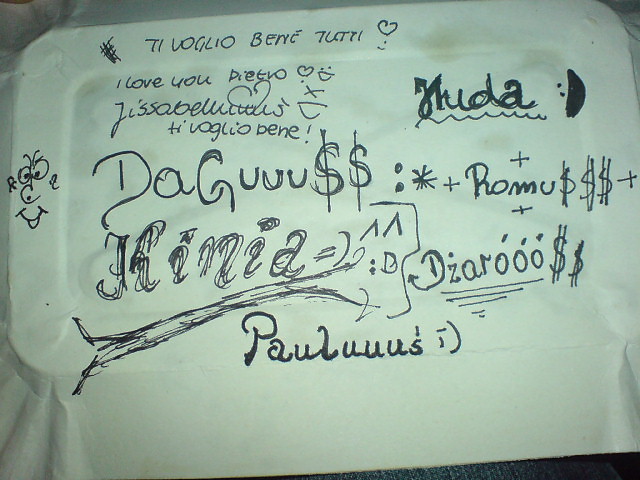 TI VOGLIO BENE TUTTI ♡
I love you Pietro ♡
Jissabelluuuuś
ti voglio bene!
Huda :)
DaGuuu$$ :* + Romu$$$ +
Kinia =) ^^ :D Dżaróóó$$
Pauluuuś ;)